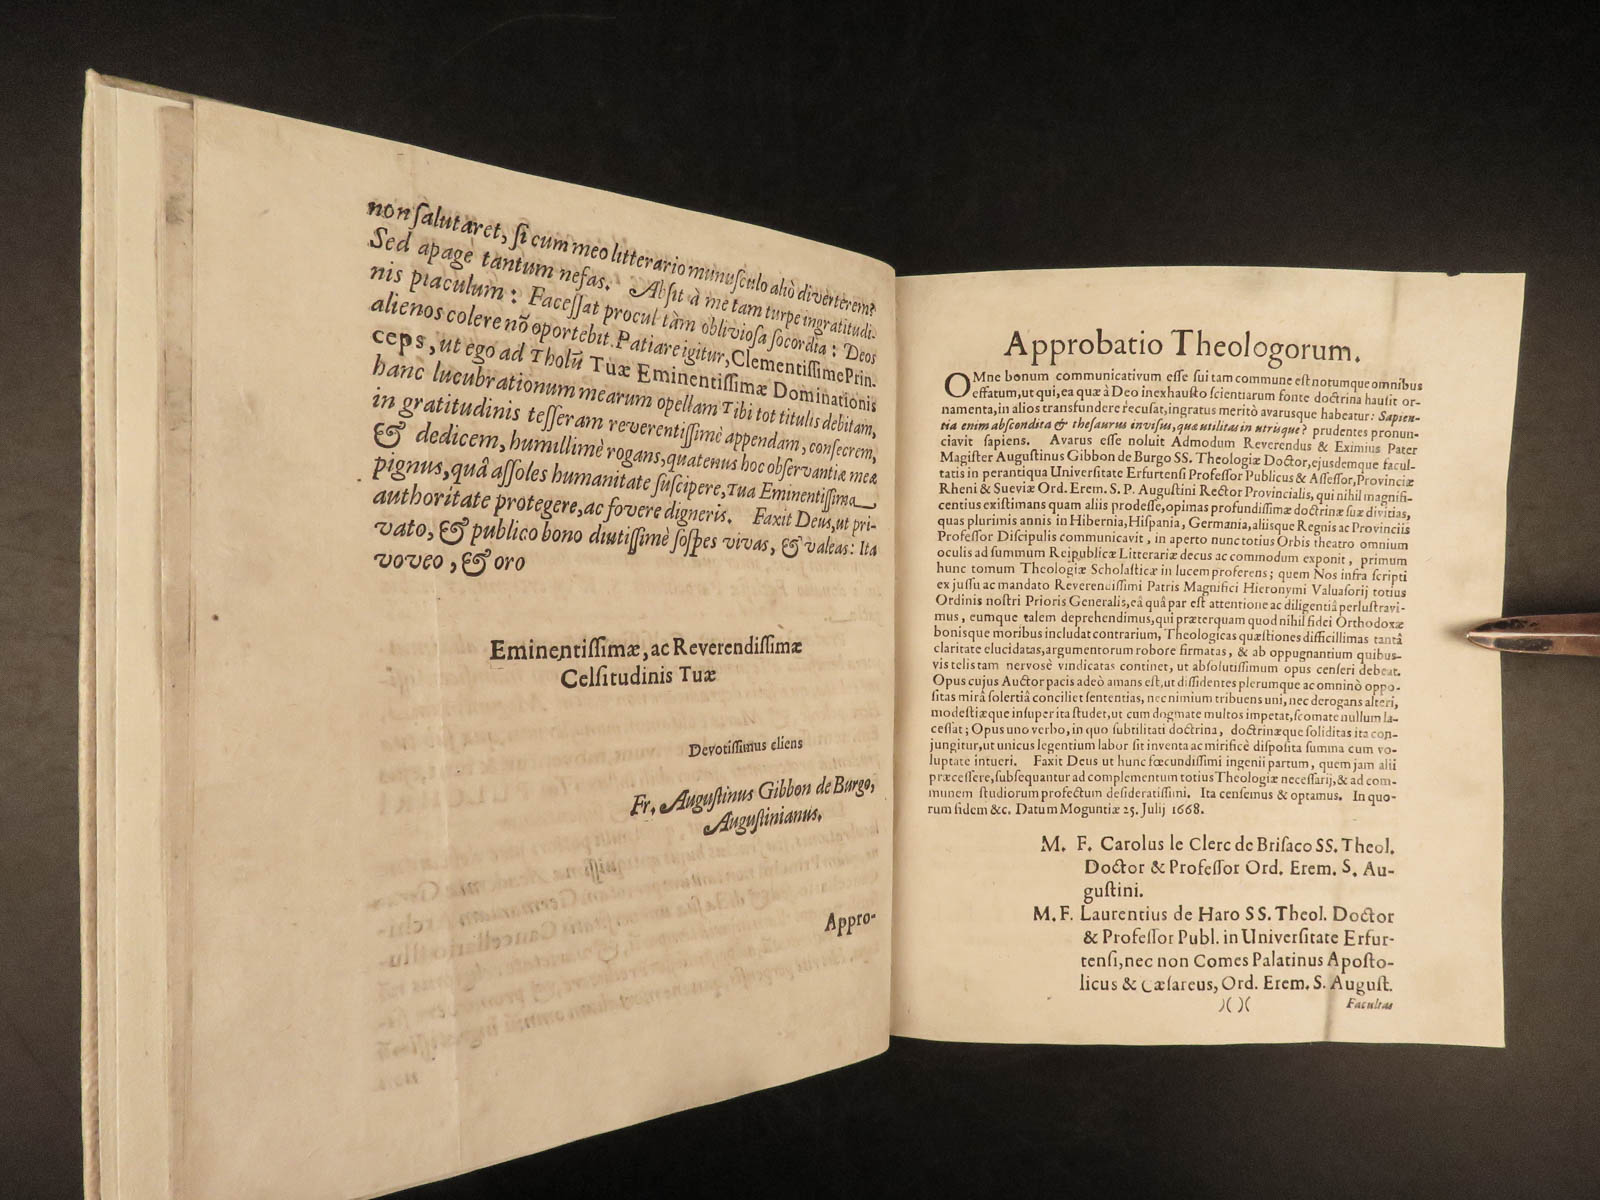 non ſalutaret, ſi cum meo litterario munuſculo aliò diverterem?
Sed apage tantum nefas. Abſit à me tam turpe ingratitudi-
nis piaculum: Faceſſat procul tàm oblivioſa ſocordia: Deos
alienos colere nõ oportebit. Patiare igitur, Clementiſſime Prin-
ceps, ut ego ad Tholũ Tuæ Eminentiſſimæ Dominationis
hanc lucubrationum mearum opellam Tibi tot titulis debitam,
in gratitudinis teſſeram reverentiſſimè appendam, conſecrem,
& dedicem, humillimè rogans, quatenus hoc obſervantiæ meæ
pignus, quâ aſſoles humanitate ſuſcipere, Tua Eminentiſſima
authoritate protegere, ac fovere digneris. Faxit Deus, ut pri-
vato, & publico bono diutiſſimè ſoſpes vivas, & valeas: Ita
voveo, & oro
Eminentiſſimæ, ac Reverendiſſimæ
Celſitudinis Tuæ
Devotiſſimus cliens
Fr. Auguſtinus Gibbon de Burgo,
Auguſtinianus.
Appro-
Approbatio Theologorum.
OMne bonum communicativum eſſe ſui tam commune eſt notumque omnibus
effatum, ut qui, ea quæ à Deo inexhauſto ſcientiarum fonte doctrina hauſit or-
namenta, in alios transfundere recuſat, ingratus meritò avarusque habeatur: Sapien-
tia enim abſcondita & theſaurus inviſus, quæ utilitas in utrisque? prudentes pronun-
ciavit ſapiens. Avarus eſſe noluit Admodum Reverendus & Eximius Pater
Magiſter Auguſtinus Gibbon de Burgo SS. Theologiæ Doctor, ejusdemque facul-
tatis in perantiqua Univerſitate Erfurtenſi Profeſſor Publicus & Aſſeſſor, Provinciæ
Rheni & Sueviæ Ord. Erem. S. P. Auguſtini Rector Provincialis, qui nihil magnifi-
centius exiſtimans quam aliis prodeſſe, opimas profundiſſimæ doctrinæ ſuæ divitias,
quas plurimis annis in Hibernia, Hiſpania, Germania, aliisque Regnis ac Provinciis
Profeſſor Diſcipulis communicavit, in aperto nunc totius Orbis theatro omnium
oculis ad ſummum Reipublicæ Litterariæ decus ac commodum exponit, primum
hunc tomum Theologiæ Scholaſticæ in lucem proferens; quem Nos infra ſcripti
ex juſſu ac mandato Reverendiſſimi Patris Magnifici Hieronymi Valvaſorij totius
Ordinis noſtri Prioris Generalis, eâ quâ par eſt attentione ac diligentiâ perluſtravi-
mus, eumque talem deprehendimus, qui præterquam quod nihil fidei Orthodoxæ
bonisque moribus includat contrarium, Theologicas quæſtiones difficillimas tantâ
claritate elucidatas, argumentorum robore firmatas, & ab oppugnantium quibus-
vis telis tam nervosè vindicatas continet, ut abſolutiſſimum opus cenſeri debeat.
Opus cujus Auctor pacis adeò amans eſt, ut diſſidentes plerumque ac omninò oppo-
ſitas mirâ ſolertiâ conciliet ſententias, nec nimium tribuens uni, nec derogans alteri,
modeſtiæque inſuper ita ſtudet, ut cum dogmate multos impetat, ſcomate nullum la-
ceſſat; Opus uno verbo, in quo ſubtilitati doctrina, doctrinæque ſoliditas ita con-
jungitur, ut unicus legentium labor ſit inventa ac mirificè diſpoſita ſumma cum vo-
luptate intueri. Faxit Deus ut hunc fœcundiſſimi ingenii partum, quem jam alii
præceſſere, ſubſequantur ad complementum totius Theologiæ neceſſarij, & ad com-
munem ſtudiorum profectum deſideratiſſimi. Ita cenſemus & optamus. In quo-
rum fidem &c. Datum Moguntiæ 25. Julij 1668.
M. F. Carolus le Clerc de Briſaco SS. Theol.
Doctor & Profeſſor Ord. Erem. S. Au-
guſtini.
M. F. Laurentius de Haro SS. Theol. Doctor
& Profeſſor Publ. in Univerſitate Erfur-
tenſi, nec non Comes Palatinus Apoſto-
licus & Cæſareus, Ord. Erem. S. Auguſt.
)( )(
Facultas